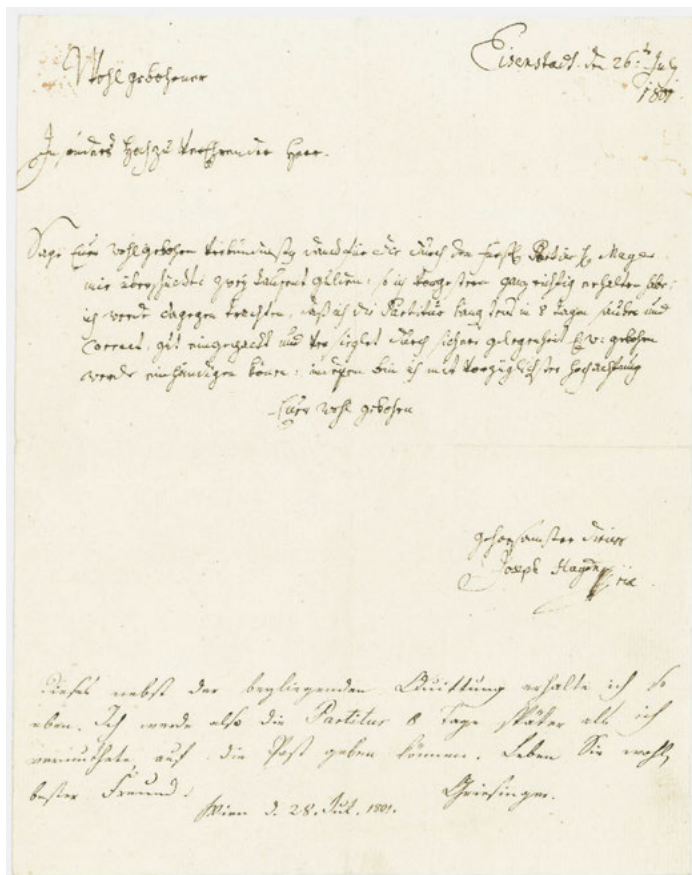 Eisenstadt. den 26:t July
1801
Wohlgebohrner
Insonders Hochzu Verehrender Herr.
Sage Euer Wohlgebohrn verbündnisten danck für die durch den fürstl
mir überschückte zwey tausent gulden, so ich vorgestern ganz richtig erhalten habe;
ich werde dagegen trachten, daß ich die Partitur längstens in 8 tagen sauber und
Correct, gut eingepackt und versieglet durch sichere gelegenheit Eu: gebohrn
werde einhändigen könen: indessen bin ich mit vorzüglichster hochachtung
Euer Wohl gebohrn
gehorsamster diener
Joseph Haydn
Dieses nebst der beyliegenden Quittung erhalte ich so
eben. Ich werde also die Partitur 8 Tage später als ich
vermuthete, auf die Post geben können. Leben Sie wohl,
bester Freund.
Griesinger.
Wien d. 28. Jul. 1801.